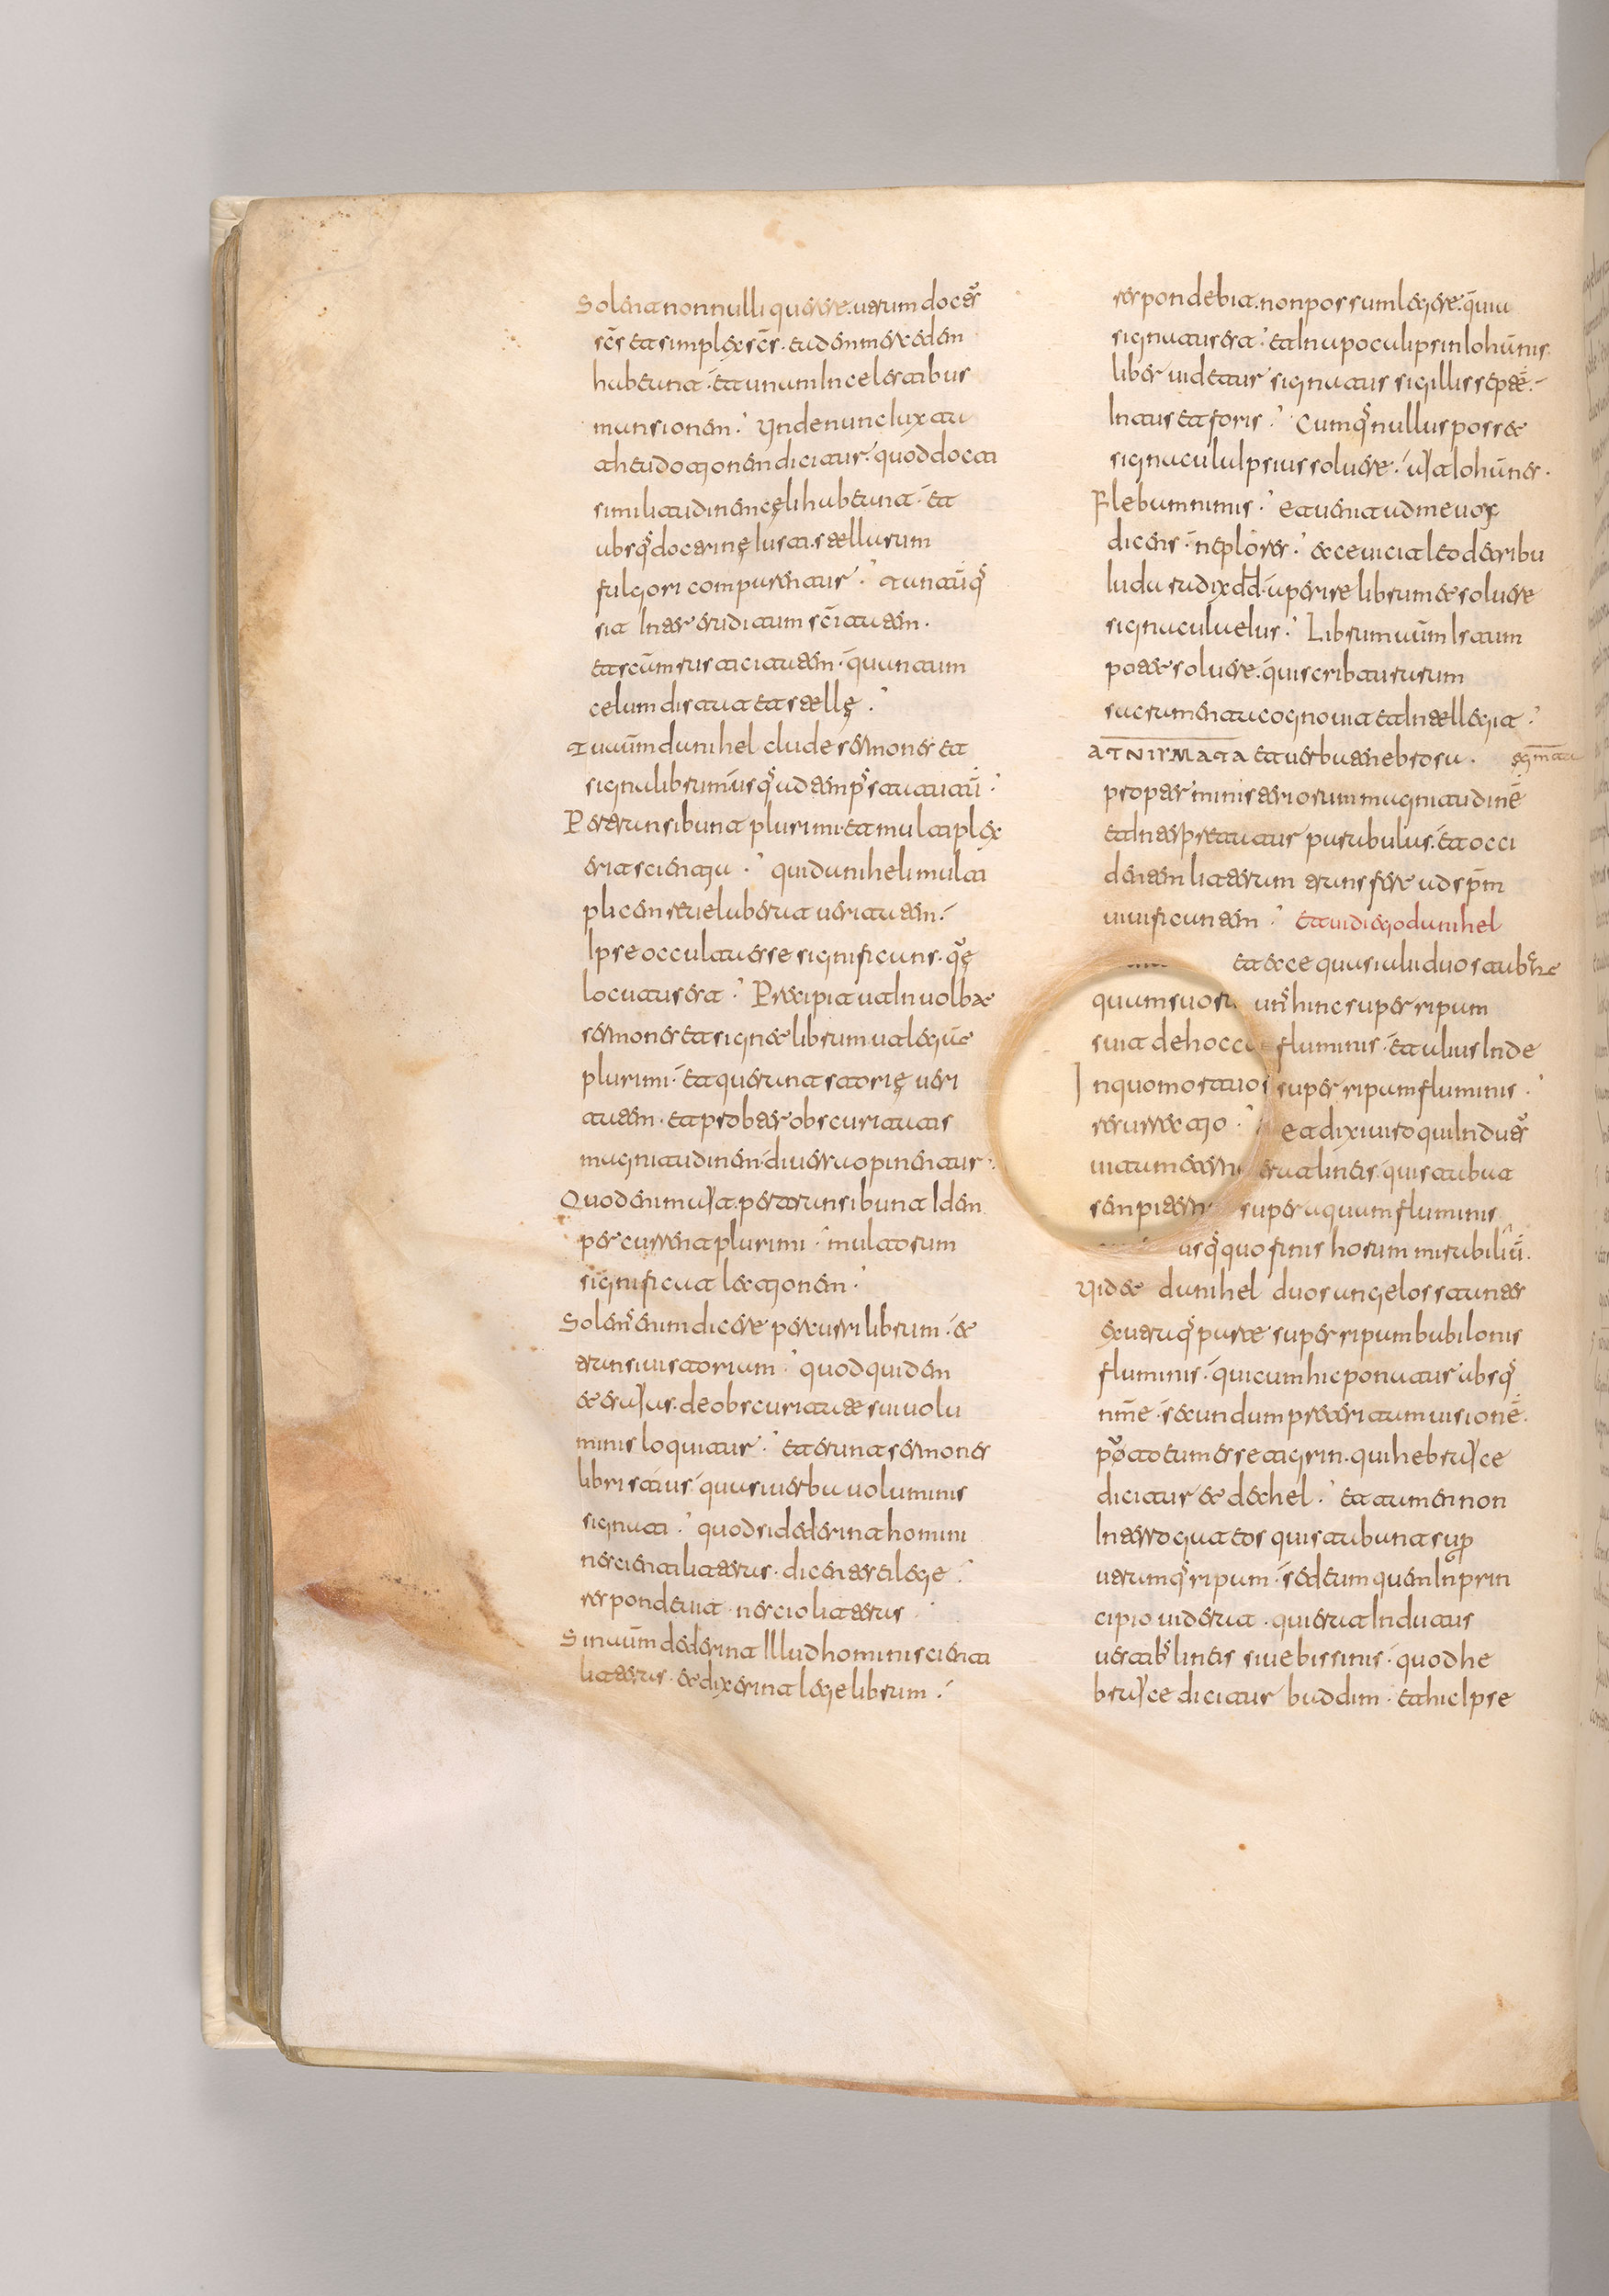 Solent nonnulli querere. utrum doctꝰ
sc̄s et simplex sc̄s. eadem mercedem
habeant. et unam In celestibus
mansionem. Unde nunc Iuxta
theudotionem dicitur. quod docti
similitudinem cęli habeant. et
absq; doctrinę Iusti. stellarum
fulgori comparentur. tantūq;
sit Inter eruditam sc̄itatem.
et sc̄am rusticitatem. quantum
celum distat et stellę.
Tu autm̄ danihel clude sermones et
signa librum usq; ad temps̄ statutū.
Pertransibunt plurimi. et multiplex
erit scientia. qui daniheli multi
plicem reuelaberat ueritatem.
Ipse occulta esse significans. que
locutus est. Precipit ut Inuolbat
sermones et signet librum. ut legant
plurimi. et querant storię ueri
tatem. et propter obscuritatis
magnitudinem. diuersa opinentur.
Quod enim ait. pertransibunt Idem
percurrent plurimi. multorum
significat lectionem.
Solemꝰ enim dicere percurri librum. et
transiui storiam. quod quidem
et esayas. de obscuritate sui uolu
minis loquitur. et erunt sermones
libri stius quasi uerba uoluminis
signati. quod si dederint homini
nescienti litteras. dicentes ei lege.
respondeuit. nescio litteras.
Sin autm̄ dederint Illud homini scienti
litteras. et dixerint lege librum.
respondebit. non possum legere. quia
signatus est. et In apocalipsin Iohannis.
liber uidetur signatus sigillis septē.
Intus et foris. Cumq; nullus posset
signacula Ipsius soluere. ayt Iohannes.
Flebam nimis. et uenit ad me uox
dicens. ne plores. ecce uicit leo de tribu
Iuda radix dd. aperire librum et soluere
signacula eius. Librum autm̄ Istum
potest soluere. qui scribturarum
sacramenta cognouit et Intellegit.
et uerba tenebrosa.
propter ministeriorum magnitudinē
et Interpretatur parabulas. et occi
dentem litterarum transfere ad sp̄m
uiuificantem. Et uidi ego danihel
et ecce quasi alii duo stabant
quam suos unꝰ hinc super ripam
suit de hoc c fluminis. et alius Inde
In quo mostauos super ripam fluminis.
resurrectio. et dixi uiro qui Indutꝰ
uitam eterni erat lineis. qui stabat
sempiter super aquam fluminis
usq; quo finis horum mirabiliū.
Uidet danihel duos angelos stantes
ex utraq; parte super ripam babilonis
fluminis. qui cum hic ponatur absq;
nm̄e. secundum preteritam uisionē.
puto eum esse tigrin. qui hebrayce
dicitur eddechel. et tamen non
Interrogat eos qui stabant super
utramq; ripam. sed eum quem In prin
cipio uiderat. qui erat Indutus
uestibꝰ lineis siue bissinis. quod he
brayce dicitur baddim. et hic Ipse